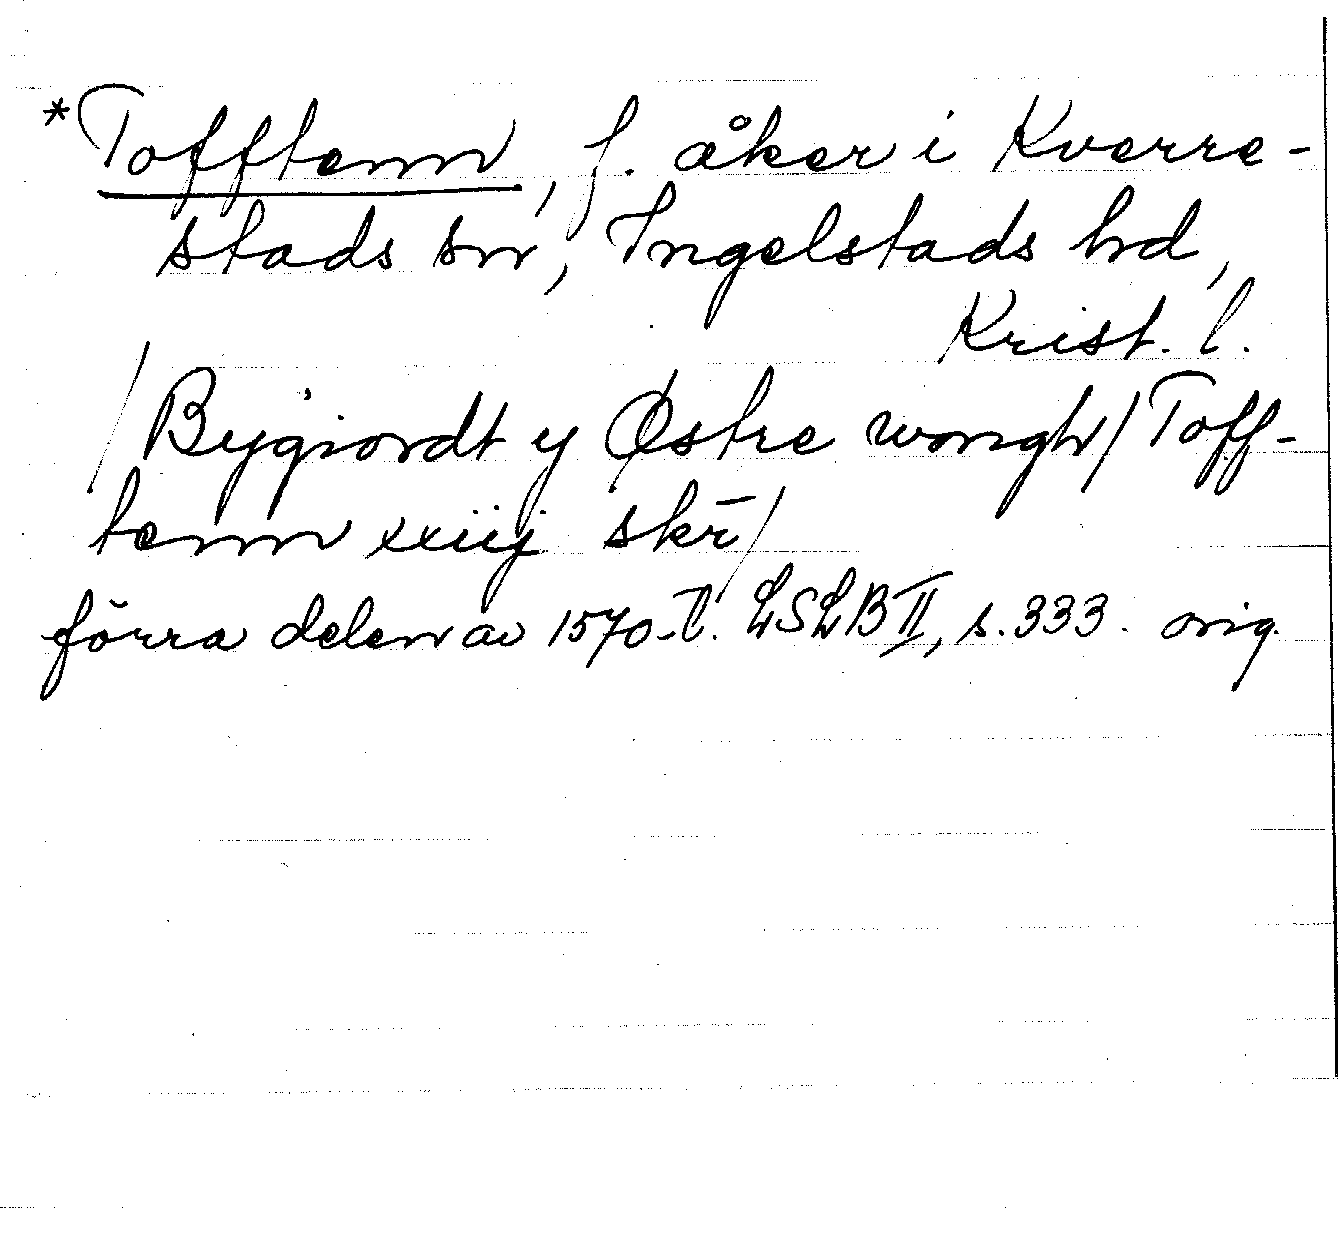 *Tofftenn, f. åker i Kverre-
stads sn, Ingelstads hd,
Krist. l.
/Bygiordt y Østre wongh/ Toff-
tenn xxiiij skr̄/
förra delen av 1570-t. LSLB II, s. 333. orig.